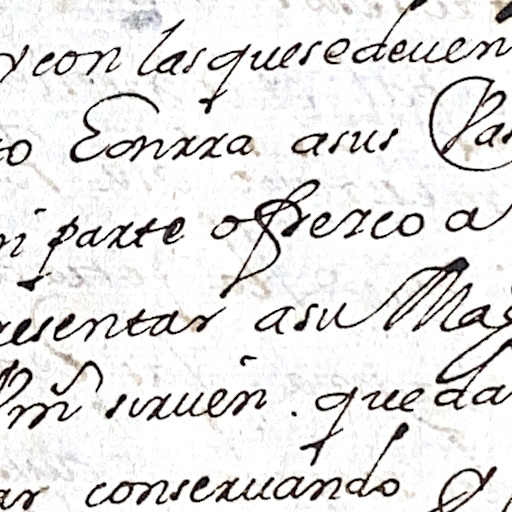 y con las que se deuen
to Honrra a sus Vas
mi parte ofrerco a
resentar a su Mag
Pm̃ siruen. queda
ar conseruando q